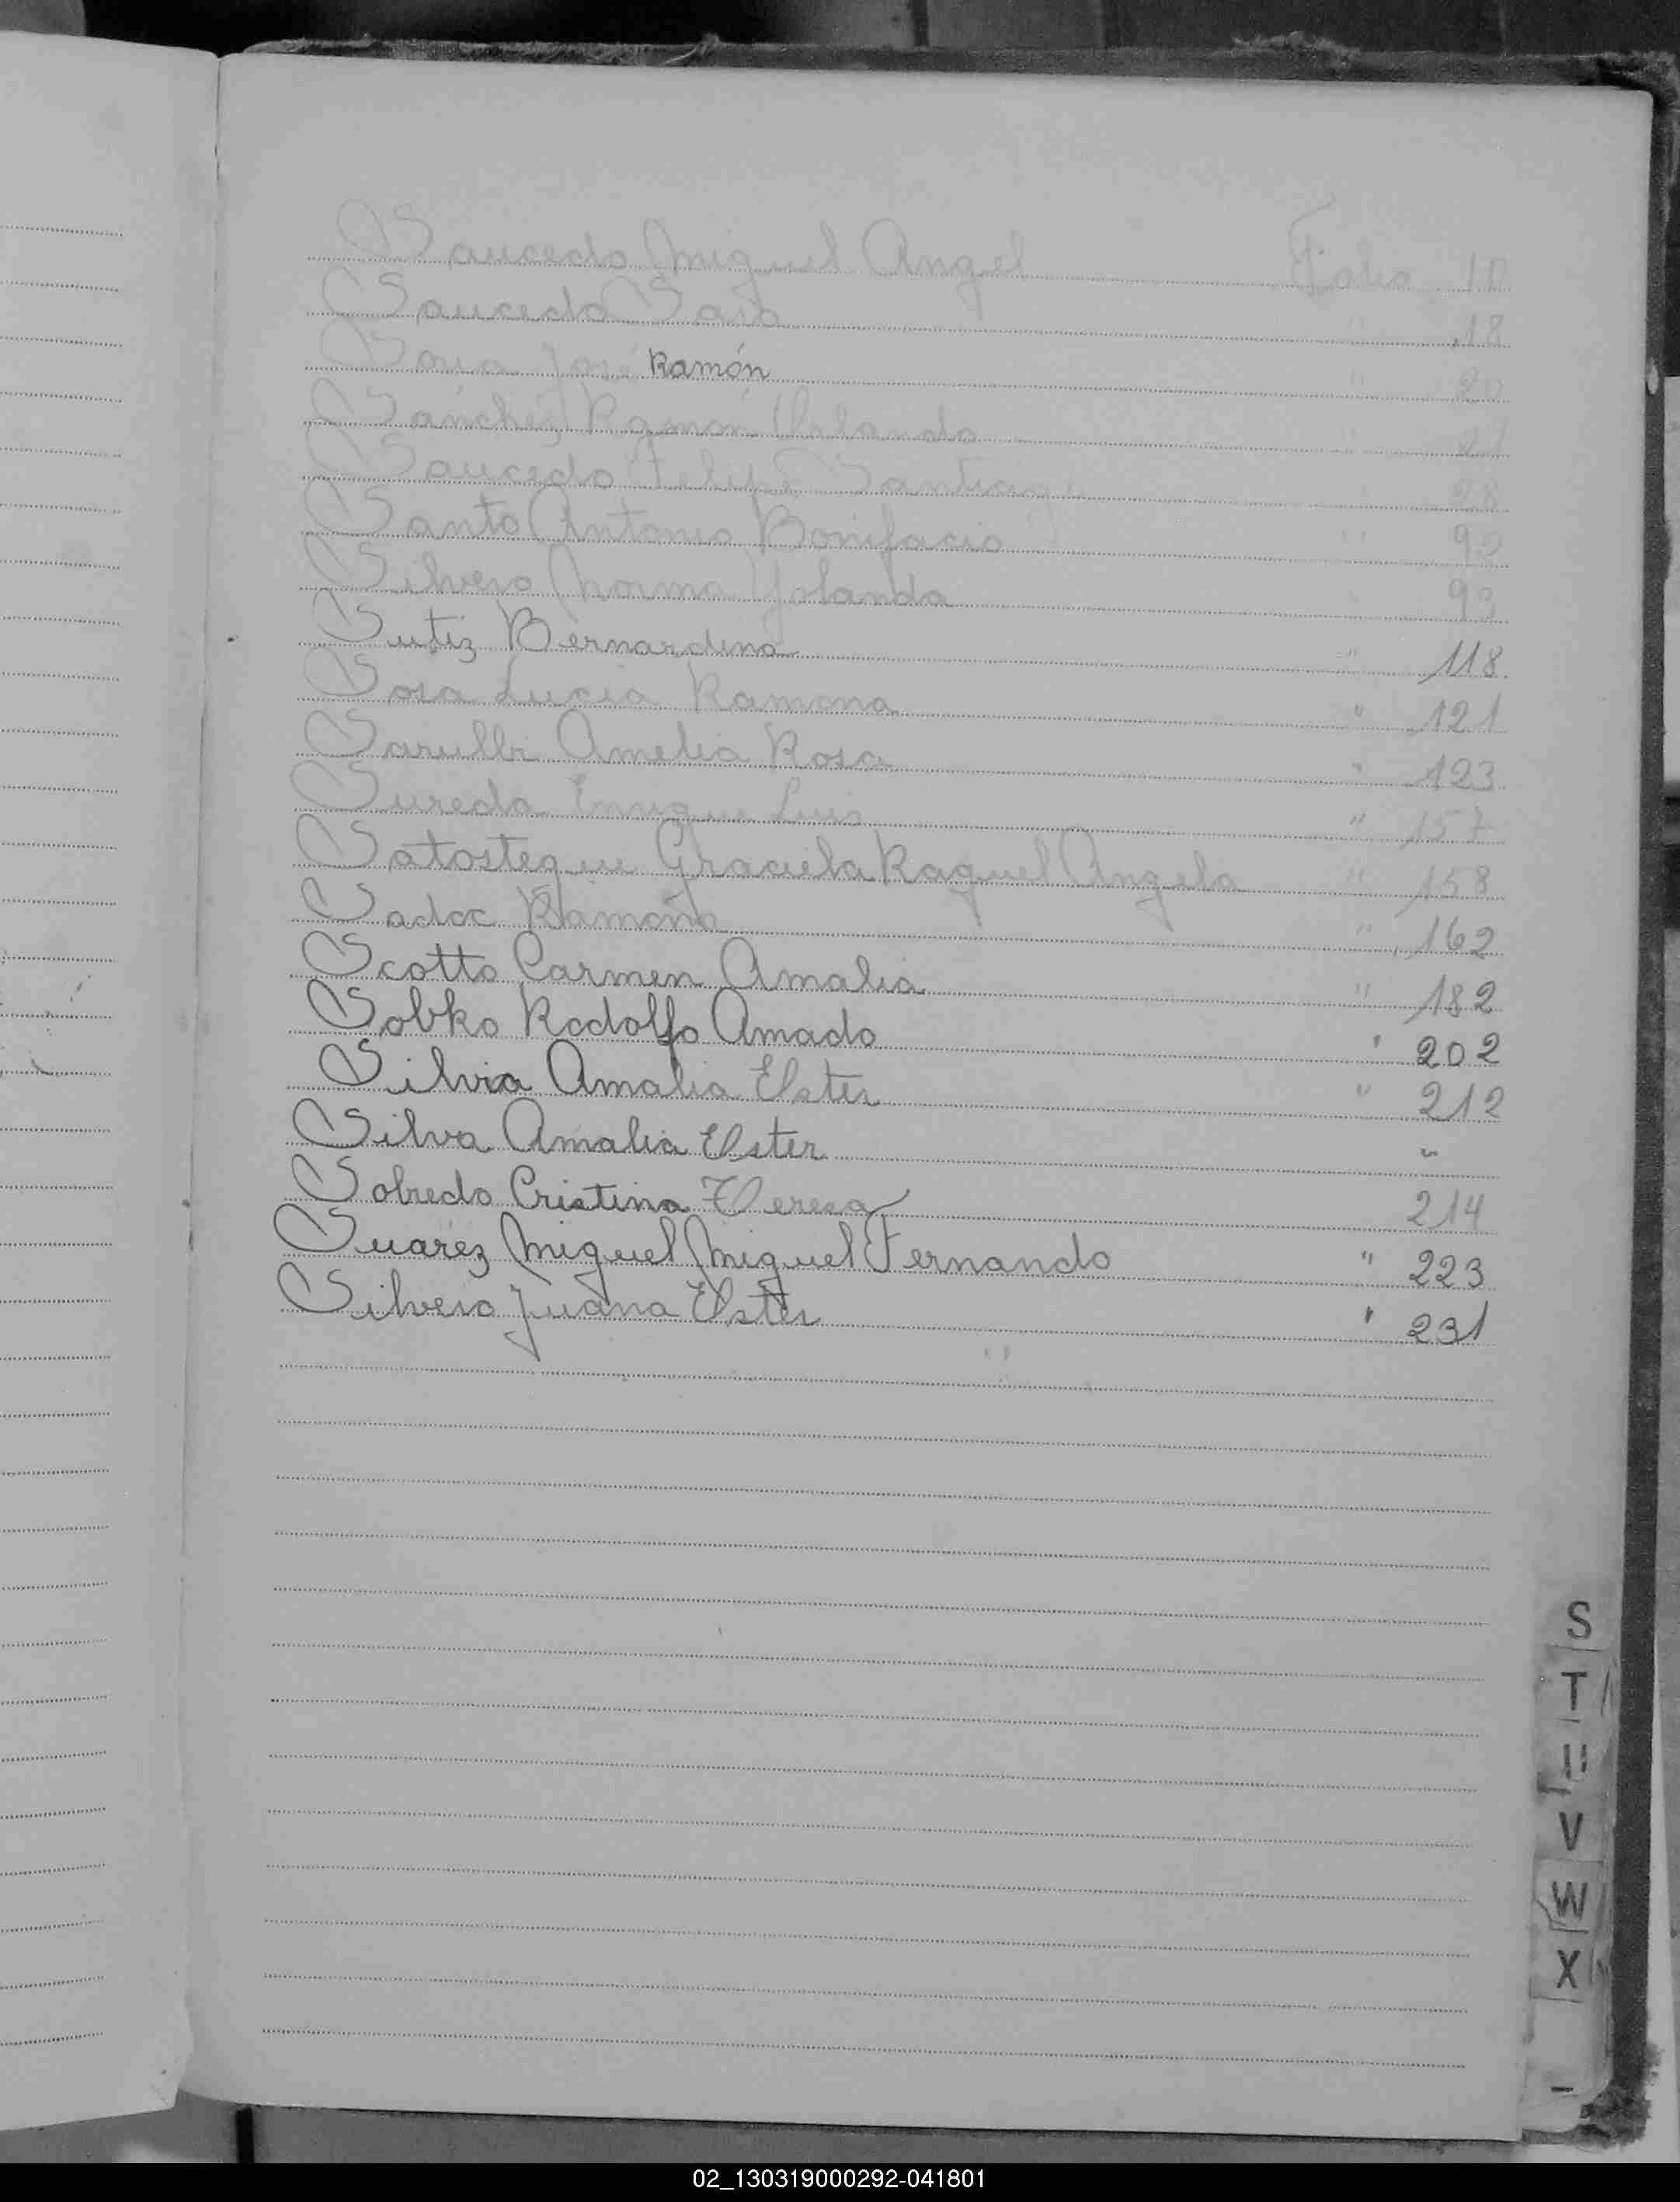 Saucedo Miguel Angel Folio 10
Saucedo Sara " 18
Soria José Ramón " 20
Sanchez Ramón Orlando 21
Saucedo Felipe Santiago 28
Santo Antonio Bonifacio " 90
Silvero Norma Yolanda 93
Sutiz Bernardina " 118
Sosa Lucia Ramona " 121
Sarulli Amelia Rosa " 123
Sureda Enrique Luis " 157
Satostegui Graciela Raquel Angela " 158
Sadoc Ramona " 162
Scotto Carmen Amalia " 182
Sobko Rodolfo Amado " 202
Silvia Amalia Ester " 212
Silva Amalia Ester "
Sobredo Cristina Teresa 214
Suarez Miguel Miguel Fernando " 223
Silvero Juana Ester " 231
S
T
U
V
W
X
02_130319000292-041801